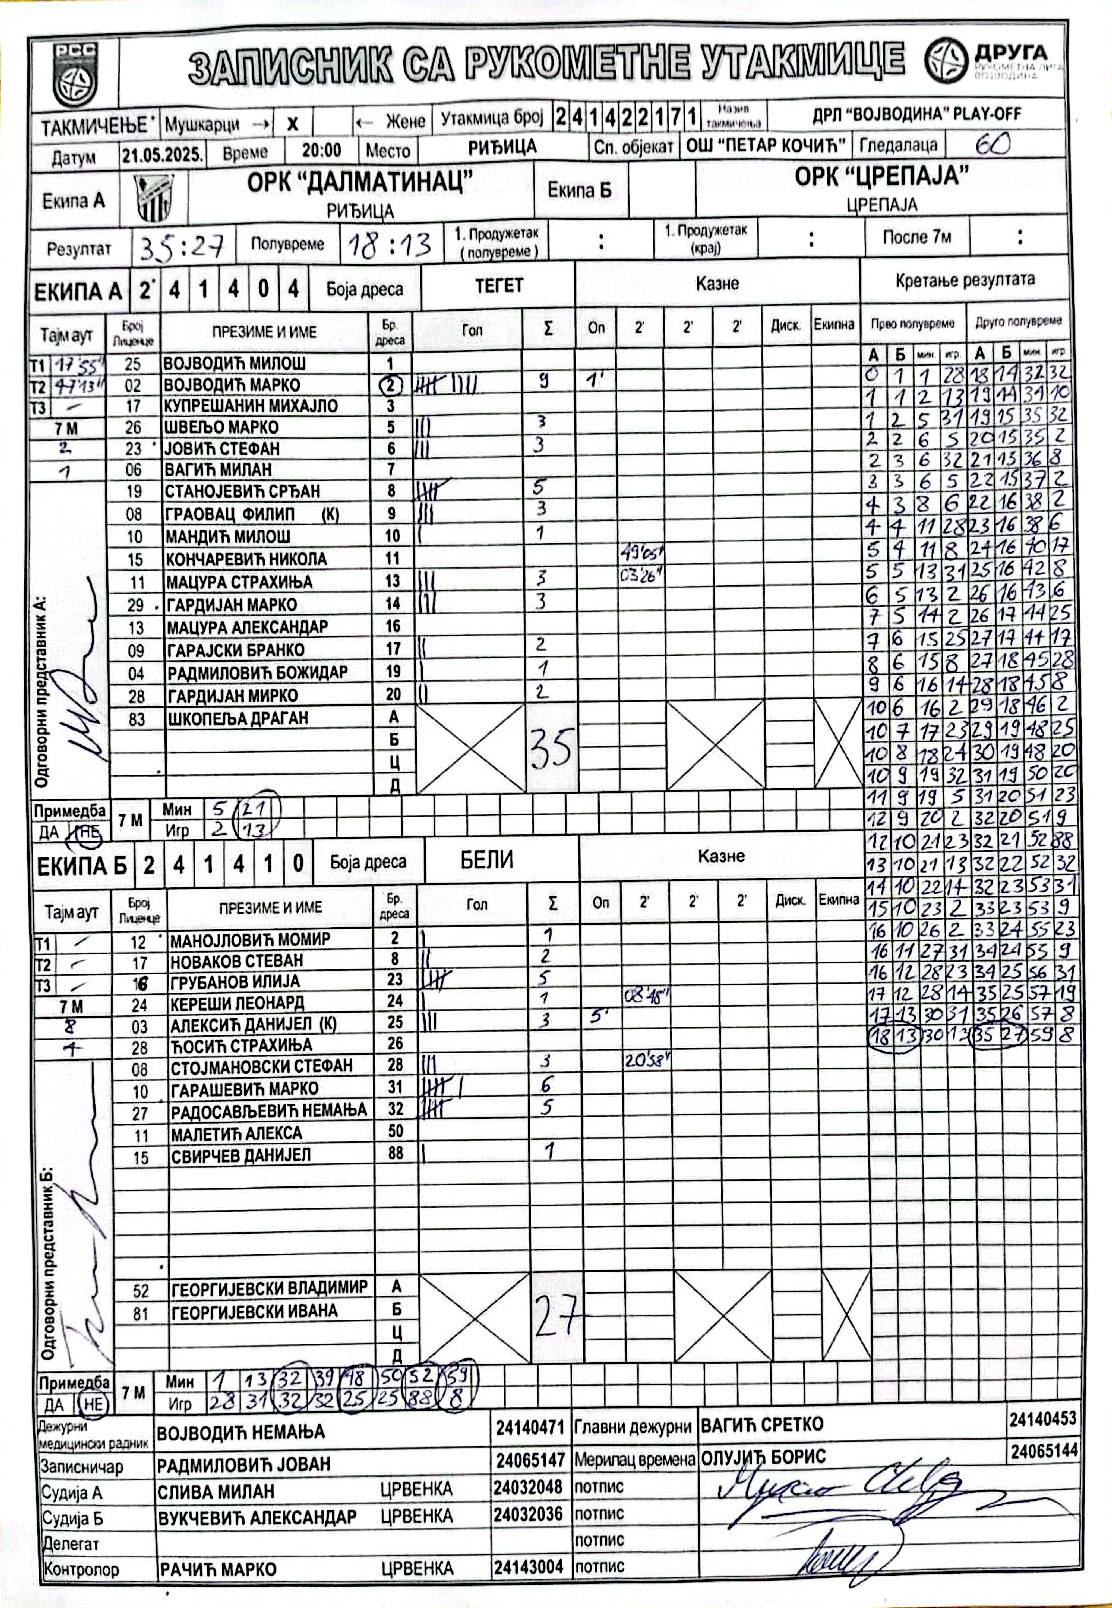 РСС
ЗАПИСНИК СА РУКОМЕТНЕ УТАКМИЦЕ
ДРУГА
РУКОМЕТНА ЛИГА
ВОЈВОДИНА
ТАКМИЧЕЊЕ Мушкарци → X ← Жене Утакмица број 241422171 Назив такмичења ДРЛ “ВОЈВОДИНА” PLAY-OFF
Датум 21.05.2025. Време 20:00 Место РИЂИЦА Сп. објекат ОШ “ПЕТАР КОЧИЋ” Гледалаца 60
Екипа А ОРК “ДАЛМАТИНАЦ” РИЂИЦА Екипа Б ОРК “ЦРЕПАЈА” ЦРЕПАЈА
Резултат 35:27 Полувреме 18:13 1. Продужетак (полувреме) : 1. Продужетак (крај) : После 7м :
ЕКИПА А 2 4 1 4 0 4 Боја дреса ТЕГЕТ Казне Кретање резултата
Тајм аут Број Лиценце ПРЕЗИМЕ И ИМЕ Бр. дреса Гол Σ Оп 2' 2' 2' Диск. Екипна Прво полувреме Друго полувреме
А Б мин. игр. А Б мин. игр.
Т1 17'55" 25 ВОЈВОДИЋ МИЛОШ 1
Т2 47'13" 02 ВОЈВОДИЋ МАРКО 2 9 1'
Т3 – 17 КУПРЕШАНИН МИХАЈЛО 3
7 М 26 ШВЕЉО МАРКО 5 3
2 23 ЈОВИЋ СТЕФАН 6 3
1 06 ВАГИЋ МИЛАН 7
19 СТАНОЈЕВИЋ СРЂАН 8 5
08 ГРАОВАЦ ФИЛИП (К) 9 3
10 МАНДИЋ МИЛОШ 10 1
15 КОНЧАРЕВИЋ НИКОЛА 11 49'05"
11 МАЦУРА СТРАХИЊА 13 3 03'26"
29 ГАРДИЈАН МАРКО 14 3
13 МАЦУРА АЛЕКСАНДАР 16
09 ГАРАЈСКИ БРАНКО 17 2
04 РАДМИЛОВИЋ БОЖИДАР 19 1
28 ГАРДИЈАН МИРКО 20 2
83 ШКОПЕЉА ДРАГАН А
Б
Ц
Д
35
Одговорни представник А:
Примедба ДА НЕ 7 М Мин 5 21
Игр 2 13
0 1 1 28 18 14 32 32
1 1 2 13 19 14 34 10
1 2 5 31 19 15 35 32
2 2 6 5 20 15 35 2
2 3 6 32 21 15 36 8
3 3 6 5 22 15 37 2
4 3 8 6 22 16 38 2
4 4 11 28 23 16 38 6
5 4 11 8 24 16 40 17
5 5 13 31 25 16 42 8
6 5 13 2 26 16 43 6
7 5 14 2 26 17 44 25
7 6 15 25 27 17 44 17
8 6 15 8 27 18 45 28
9 6 16 14 28 18 45 8
10 6 16 2 29 18 46 2
10 7 17 23 29 19 48 25
10 8 18 24 30 19 48 20
10 9 19 32 31 19 50 20
11 9 19 5 31 20 51 23
12 9 20 2 32 20 51 9
12 10 21 23 32 21 52 88
13 10 21 13 32 22 52 32
14 10 22 14 32 23 53 31
15 10 23 2 33 23 53 9
16 10 26 2 33 24 55 23
16 11 27 31 34 24 55 9
16 12 28 23 34 25 56 31
17 12 28 14 35 25 57 19
17 13 30 31 35 26 57 8
18 13 30 13 35 27 59 8
ЕКИПА Б 2 4 1 4 1 0 Боја дреса БЕЛИ Казне
Тајм аут Број Лиценце ПРЕЗИМЕ И ИМЕ Бр. дреса Гол Σ Оп 2' 2' 2' Диск. Екипна
Т1 – 12 МАНОЈЛОВИЋ МОМИР 2 1
Т2 – 17 НОВАКОВ СТЕВАН 8 2
Т3 – 16 ГРУБАНОВ ИЛИЈА 23 5
7 М 24 КЕРЕШИ ЛЕОНАРД 24 1 08'18"
8 03 АЛЕКСИЋ ДАНИЈЕЛ (К) 25 3 5'
4 28 ЋОСИЋ СТРАХИЊА 26
08 СТОЈМАНОВСКИ СТЕФАН 28 3 20'58"
10 ГАРАШЕВИЋ МАРКО 31 6
27 РАДОСАВЉЕВИЋ НЕМАЊА 32 5
11 МАЛЕТИЋ АЛЕКСА 50
15 СВИРЧЕВ ДАНИЈЕЛ 88 1
52 ГЕОРГИЈЕВСКИ ВЛАДИМИР А
81 ГЕОРГИЈЕВСКИ ИВАНА Б
Ц
Д
27
Одговорни представник Б:
Примедба ДА НЕ 7 М Мин 1 13 32 39 48 50 52 59
Игр 28 31 32 32 25 25 88 8
Дежурни медицински радник ВОЈВОДИЋ НЕМАЊА 24140471 Главни дежурни ВАГИЋ СРЕТКО 24140453
Записничар РАДМИЛОВИЋ ЈОВАН 24065147 Мерилац времена ОЛУЈИЋ БОРИС 24065144
Судија А СЛИВА МИЛАН ЦРВЕНКА 24032048 потпис
Судија Б ВУКЧЕВИЋ АЛЕКСАНДАР ЦРВЕНКА 24032036 потпис
Делегат потпис
Контролор РАЧИЋ МАРКО ЦРВЕНКА 24143004 потпис